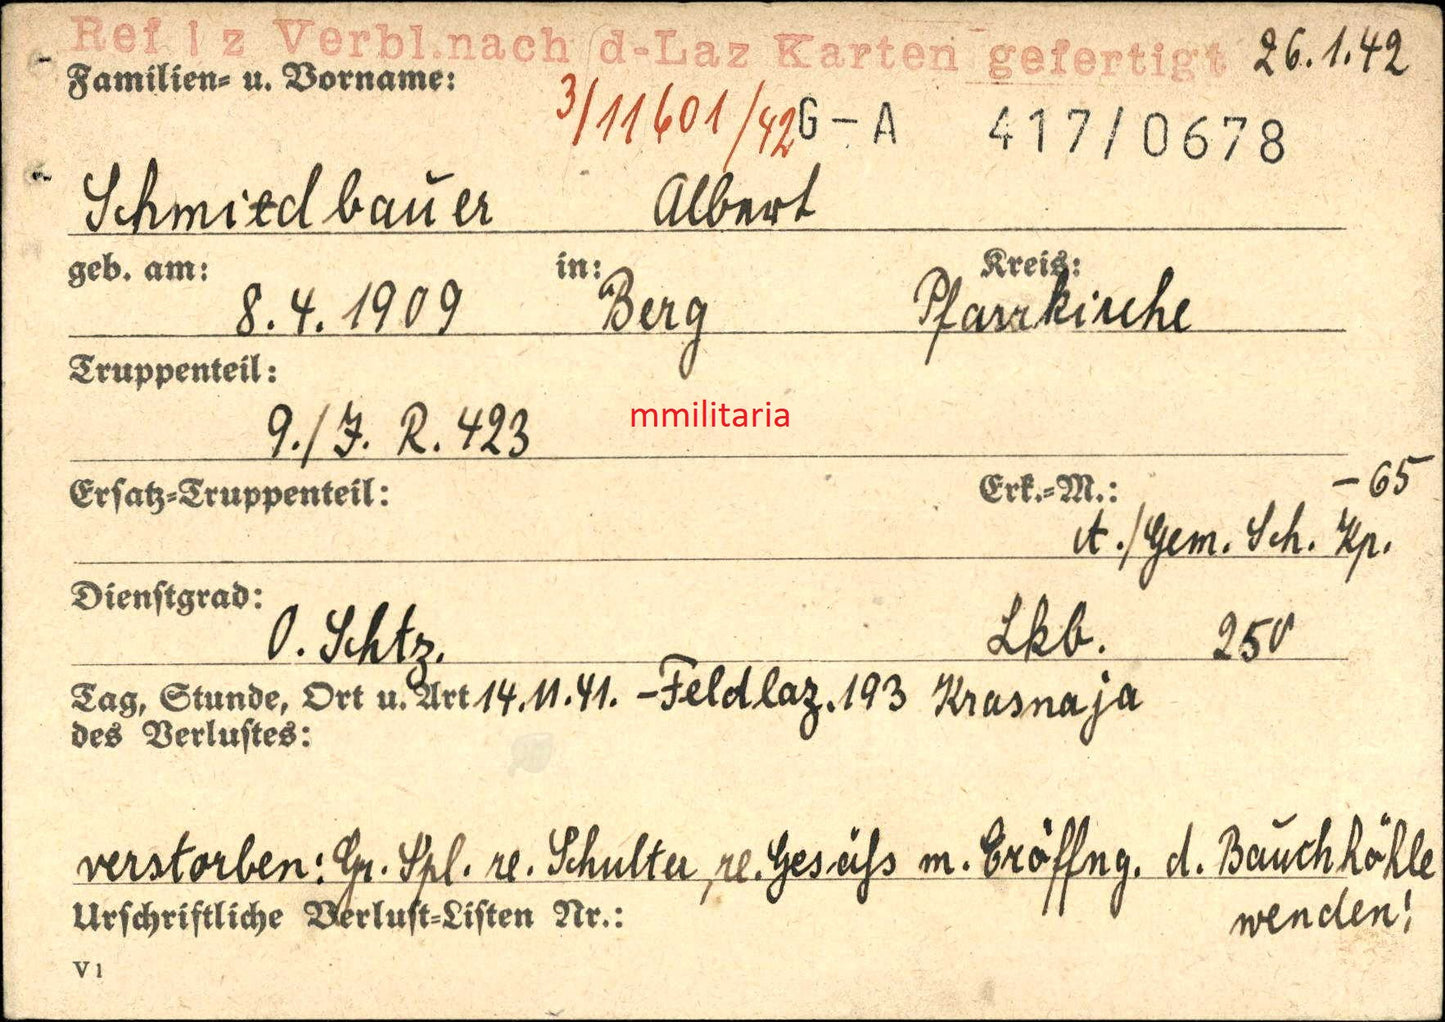 Ref I z Verbl.nach d-Laz Karten gefertigt 26.1.42
Familien- u. Vorname:
3/11601/42 G-A 417/0678
Schmidbauer Albert
geb. am: in: Kreis:
8.4.1909 Berg Pfarrkirche
Truppenteil:
9./J. R. 423
mmilitaria
Ersatz-Truppenteil: Erk.-M.: -65
A./Gem. Sch. Kp.
Dienstgrad:
O. Schtz. Lkb. 250
Tag, Stunde, Ort u. Art 14.11.41. -Feldlaz.193 Krasnaja
des Verlustes:
verstorben: Gr. Spl. re. Schulter, re. Gesäß m. Eröffng. d. Bauchhöhle
Urschriftliche Verlust-Listen Nr.: wenden!
V 1